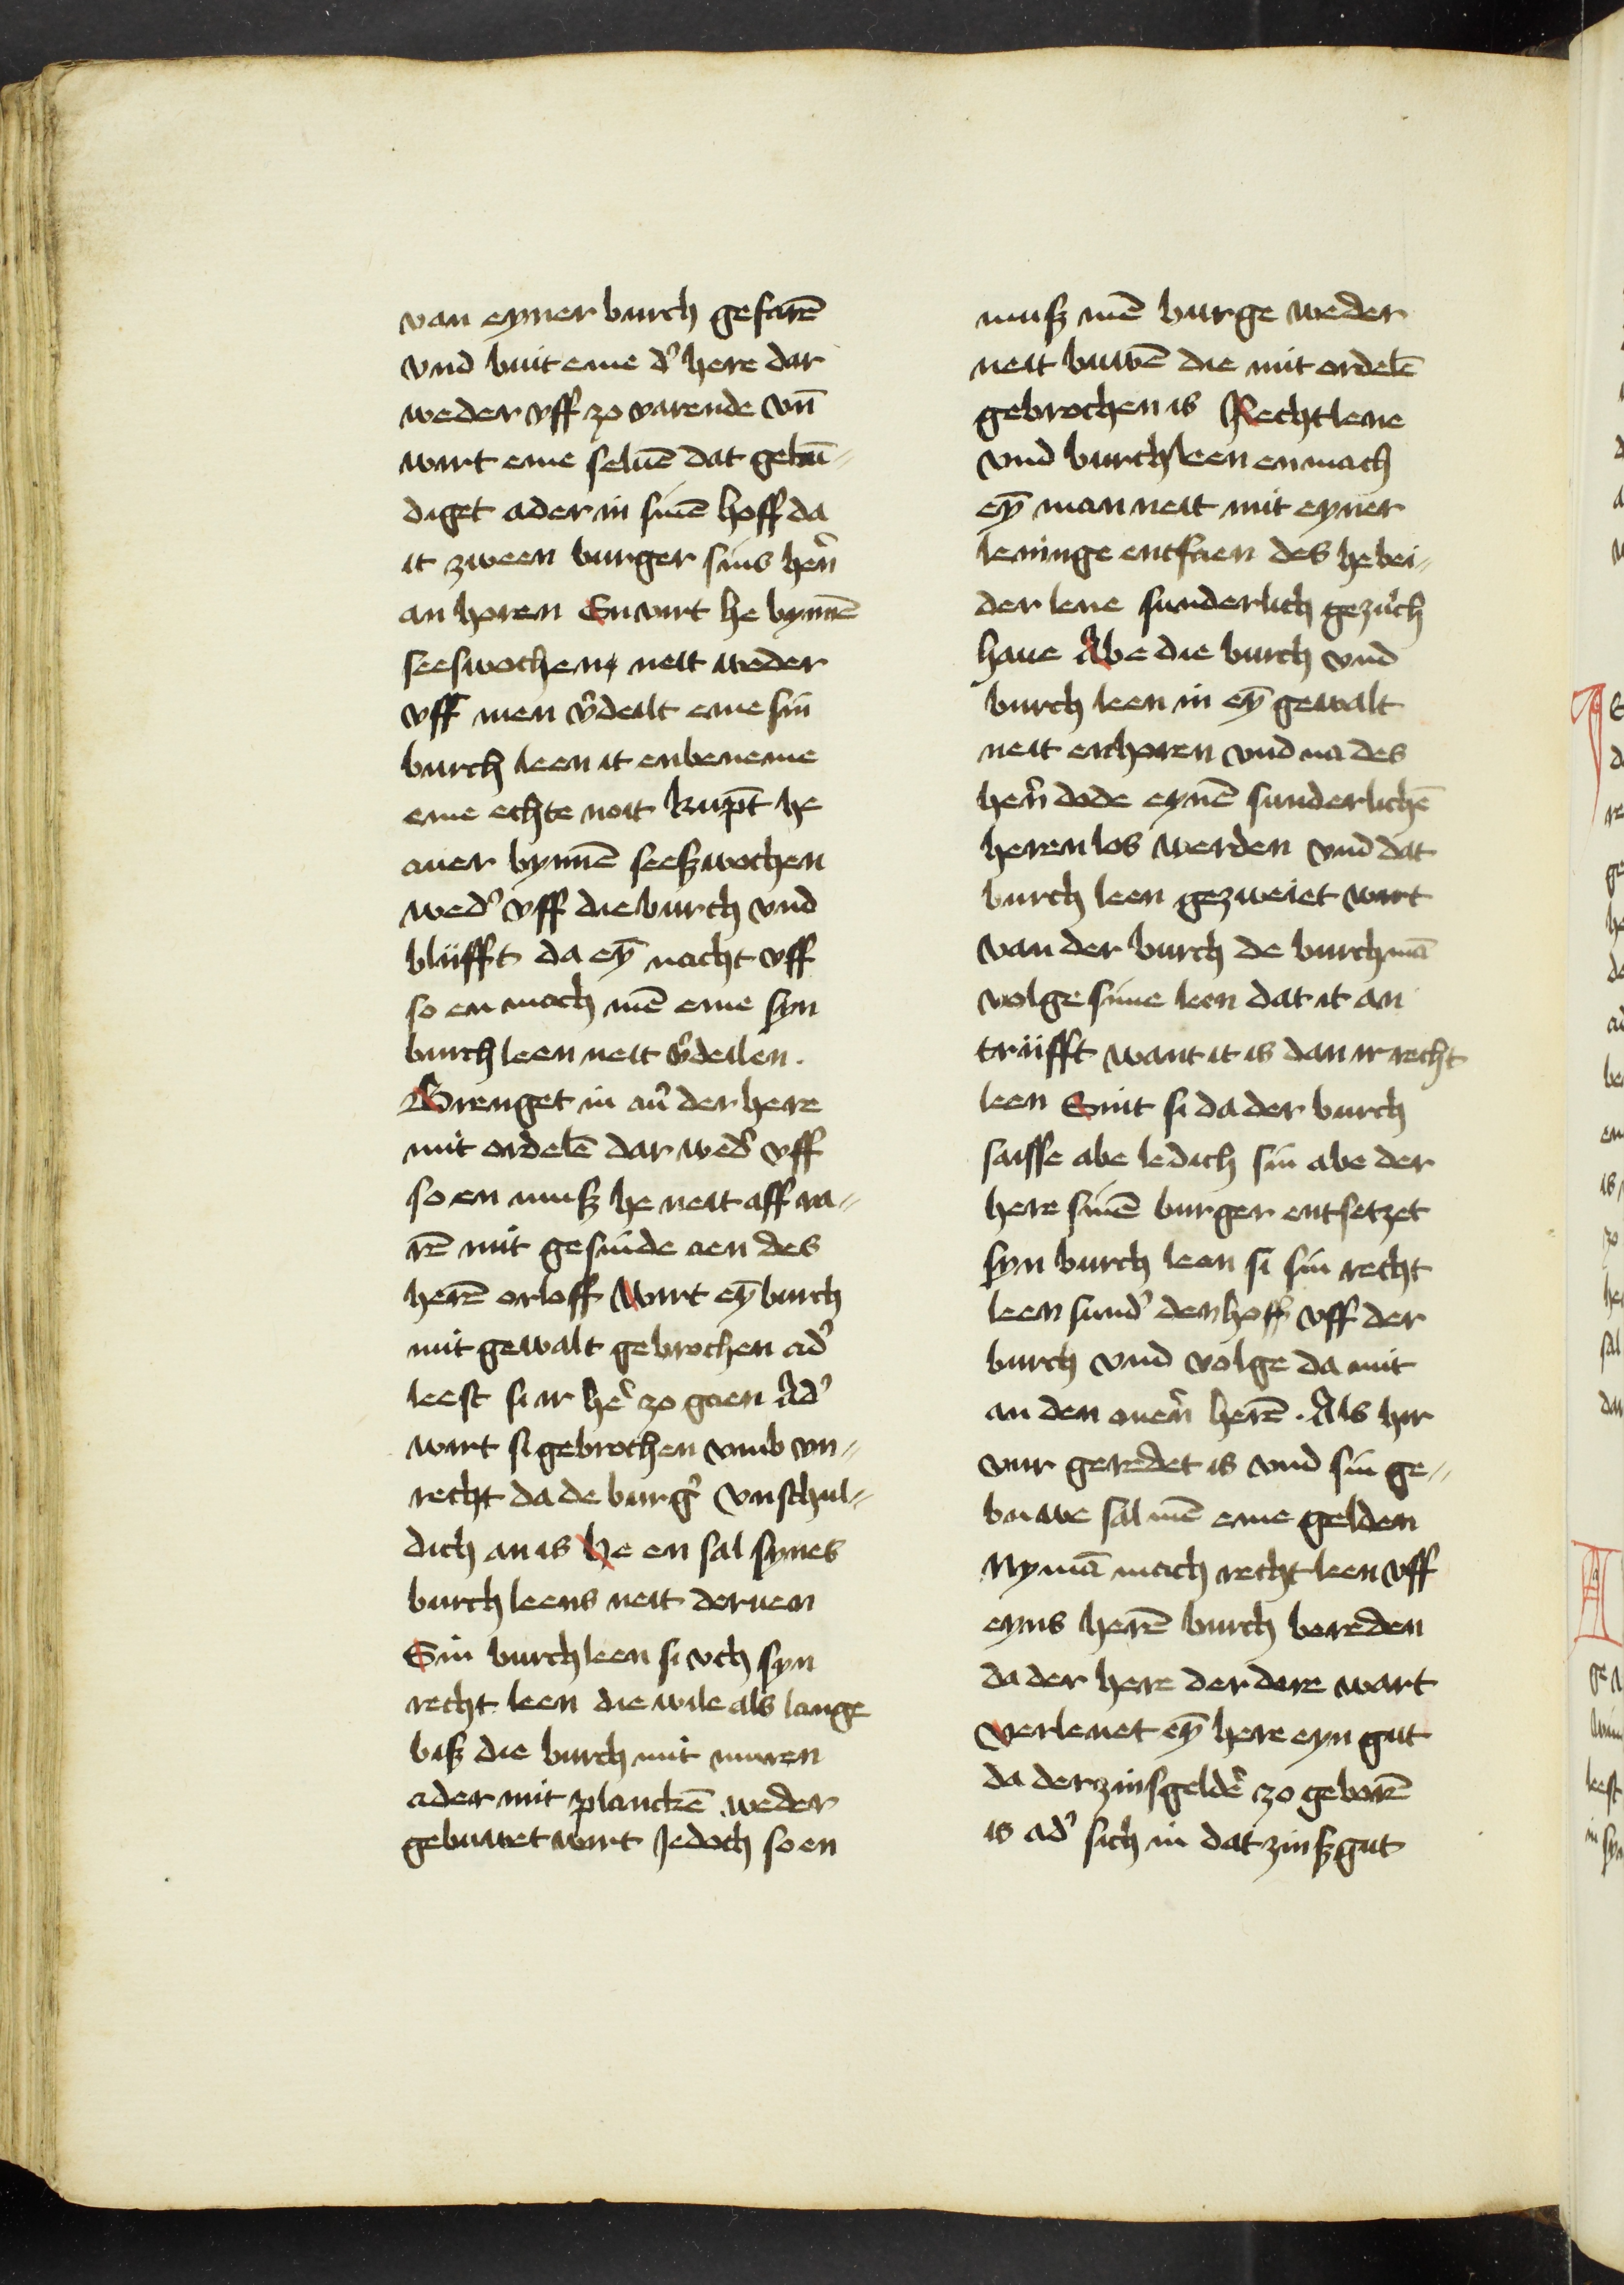 van eyner burch gefarē
vnd buit eme d' here dar
weder vff zo varende vñ
wirt eme seluē dat gebū-
diget ader in sinē hoff da
it zween burger sins hen̄
an horen En virt he bynnē
seeswochen neit weder
vff men v̄deilt eme sin
burch leen it enbeneme
eme echte noit kūpt he
auer bynnē seeßwochen
wed' vff die burch vnd
blüfft da eȳ nacht vff
so en mach mē eme syn
burch leen neit v̄deilen.
Brenget in au' der here
mit ordelē dar wed' vff
so en muß he neit aff va-
rē mit gesinde aen des
herē orloff Wirt eȳ burch
mit gewalt gebrochen ad'
leest si ir he' zo gaen Ad'
wirt si gebrochen vmb vn-
recht da de burg' vnschul-
dich an is He en sal synes
burch leens neit deruen
Sin burch leen si uch syn
recht leen die wile als lange
biß die burch mit muren
ader mit planckē weder
gebuwet wirt Jedoch so en
muß mē burge weder
neit buwē die mit ordelē
gebrochen is Recht lene
vnd burch leen en mach
eȳ man neit mit eyner
leninge entfaen des he bei-
der lene sunderlich gezüch
haue Abe die burch vnd
burch leen in eȳ gewalt
neit enhoren vnd na des
hen̄ dode eynē sunderlichē
heren los werden vnd dat
burch leen gezweiet wirt
van der burch de burchmā
volge sime leen dat it an
trüfft want it is dan ir recht
leen Sint si da der burch
saisse abe ledich sin abe der
here sinē burger entsetzet
syn burch leen si sin recht
leen sund' den hoff vff der
burch vnd volge da mit
an den ouern̄ herē. Als hir
vur geredet is vnd sin ge-
buwe sal mē eme gelden
Nymā mach recht leen vff
eyns herē burch bereden
da der here der dore wart
verlenet eȳ here eyn gut
da der zinsgelde' zo geborē
is ad' sich in dat zinßgut